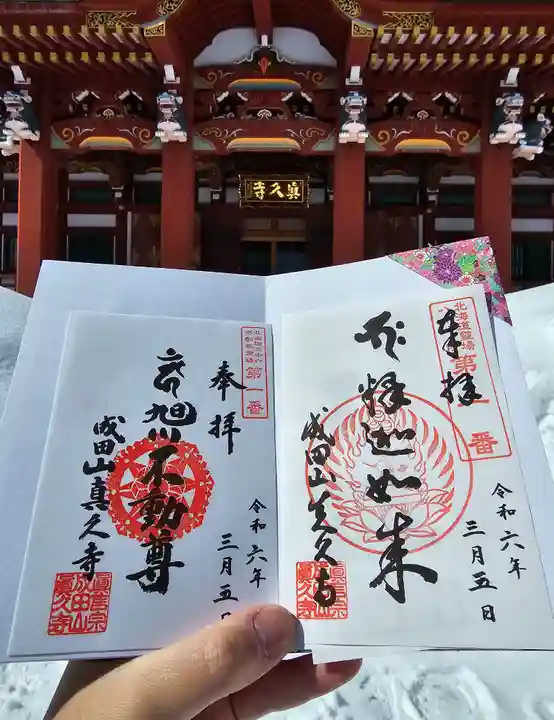 眞久寺
奉拝
北海道霊場
第一番
釈迦如来
成田山真久寺
令和六年
三月五日
奉拝
第一番
旭川不動尊
成田山真久寺
令和六年
三月五日